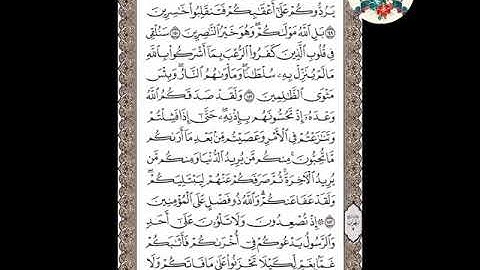 يَرُدُّوكُمْ عَلَىٰٓ أَعْقَٰبِكُمْ فَتَنقَلِبُوا۟ خَٰسِرِينَ
١٤٩ بَلِ ٱللَّهُ مَوْلَىٰكُمْ ۖ وَهُوَ خَيْرُ ٱلنَّٰصِرِينَ ١٥٠ سَنُلْقِى
فِى قُلُوبِ ٱلَّذِينَ كَفَرُوا۟ ٱلرُّعْبَ بِمَآ أَشْرَكُوا۟ بِٱللَّهِ
مَا لَمْ يُنَزِّلْ بِهِۦ سُلْطَٰنًا ۖ وَمَأْوَىٰهُمُ ٱلنَّارُ ۚ وَبِئْسَ
مَثْوَى ٱلظَّٰلِمِينَ ١٥١ وَلَقَدْ صَدَقَكُمُ ٱللَّهُ
وَعْدَهُۥٓ إِذْ تَحُسُّونَهُم بِإِذْنِهِۦ ۖ حَتَّىٰٓ إِذَا فَشِلْتُمْ
وَتَنَٰزَعْتُمْ فِى ٱلْأَمْرِ وَعَصَيْتُم مِّنۢ بَعْدِ مَآ أَرَىٰكُم
مَّا تُحِبُّونَ ۚ مِنكُم مَّن يُرِيدُ ٱلدُّنْيَا وَمِنكُم مَّن
يُرِيدُ ٱلْءَاخِرَةَ ۚ ثُمَّ صَرَفَكُمْ عَنْهُمْ لِيَبْتَلِيَكُمْ ۖ
وَلَقَدْ عَفَا عَنكُمْ ۗ وَٱللَّهُ ذُو فَضْلٍ عَلَى ٱلْمُؤْمِنِينَ
١٥٢ ۞ إِذْ تُصْعِدُونَ وَلَا تَلْوُۥنَ عَلَىٰٓ أَحَدٍ
وَٱلرَّسُولُ يَدْعُوكُمْ فِىٓ أُخْرَىٰكُمْ فَأَثَٰبَكُمْ
غَمًّۢا بِغَمٍّ لِّكَيْلَا تَحْزَنُوا۟ عَلَىٰ مَا فَاتَكُمْ وَلَا